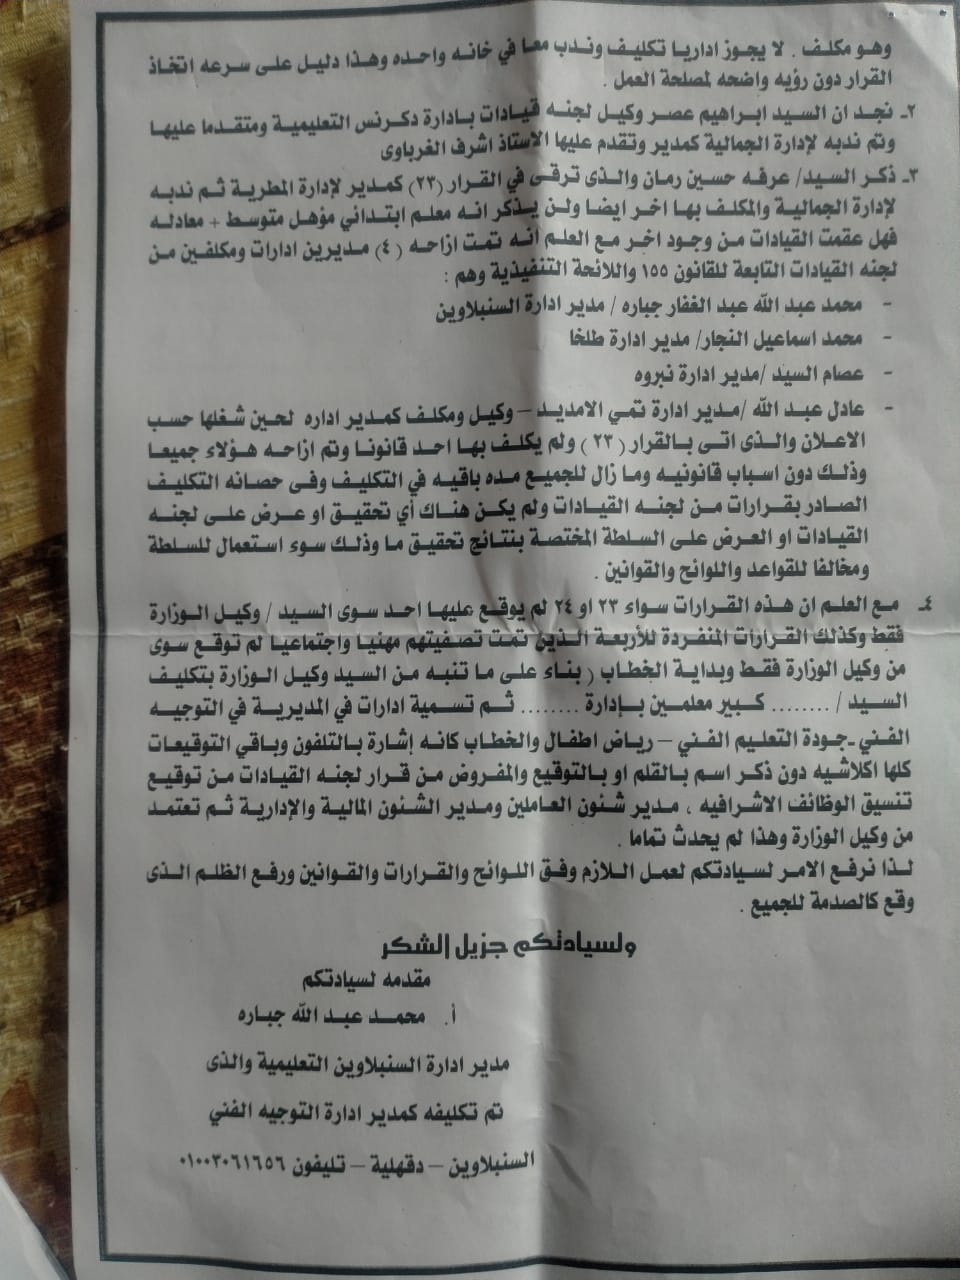 وهو مكلف . لا يجوز اداريا تكليف وندب معا في خانه واحده وهذا دليل على سرعه اتخاذ
القرار دون رؤيه واضحه لمصلحة العمل .
٢ـ نجد ان السيد ابراهيم عصر وكيل لجنه قيادات بادارة دكرنس التعليمية ومتقدما عليها
وتم ندبه لإدارة الجمالية كمدير وتقدم عليها الاستاذ اشرف الغرباوى
٣ـ ذكر السيد/ عرفه حسين رمان والذى ترقى في القرار (٢٣) كمدير لإدارة المطرية ثم ندبه
لإدارة الجمالية والمكلف بها اخر ايضا ولن يذكر انه معلم ابتدائي مؤهل متوسط + معادله
فهل عقمت القيادات من وجود اخر مع العلم انه تمت ازاحه (٤) مديرين ادارات ومكلفين من
لجنه القيادات التابعة للقانون ١٥٥ واللائحة التنفيذية وهم :
- محمد عبد الله عبد الغفار جباره / مدير ادارة السنبلاوين
- محمد اسماعيل النجار/ مدير ادارة طلخا
- عصام السيد /مدير ادارة نبروه
- عادل عبد الله /مدير ادارة تمي الامديد – وكيل ومكلف كمدير اداره لحين شغلها حسب
الاعلان والذى اتى بالقرار (٢٣) ولم يكلف بها احد قانونا وتم ازاحه هؤلاء جميعا
وذلك دون اسباب قانونيه وما زال للجميع مده باقيه في التكليف وفى حصانه التكليف
الصادر بقرارات من لجنه القيادات ولم يكن هناك أي تحقيق او عرض على لجنه
القيادات او العرض على السلطة المختصة بنتائج تحقيق ما وذلك سوء استعمال للسلطة
ومخالفا للقواعد واللوائح والقوانين .
٤ـ مع العلم ان هذه القرارات سواء ٢٣ او ٢٤ لم يوقع عليها احد سوى السيد / وكيل الوزارة
فقط وكذلك القرارات المنفردة للأربعة الذين تمت تصفيتهم مهنيا واجتماعيا لم توقع سوى
من وكيل الوزارة فقط وبداية الخطاب ( بناء على ما تنبه من السيد وكيل الوزارة بتكليف
السيد / ........ كبير معلمين بإدارة ........ ثم تسمية ادارات في المديرية في التوجيه
الفني ـ جودة التعليم الفني – رياض اطفال والخطاب كانه إشارة بالتلفون وباقي التوقيعات
كلها اكلاشيه دون ذكر اسم بالقلم او بالتوقيع والمفروض من قرار لجنه القيادات من توقيع
تنسيق الوظائف الاشرافيه ، مدير شئون العاملين ومدير الشئون المالية والإدارية ثم تعتمد
من وكيل الوزارة وهذا لم يحدث تماما .
لذا نرفع الامر لسيادتكم لعمل اللازم وفق اللوائح والقرارات والقوانين ورفع الظلم الذى
وقع كالصدمة للجميع .
ولسيادتكم جزيل الشكر
مقدمه لسيادتكم
أ. محمد عبد الله جباره
مدير ادارة السنبلاوين التعليمية والذى
تم تكليفه كمدير ادارة التوجيه الفني
السنبلاوين – دقهلية – تليفون ٠١٠٠٣٠٦١٦٥٦